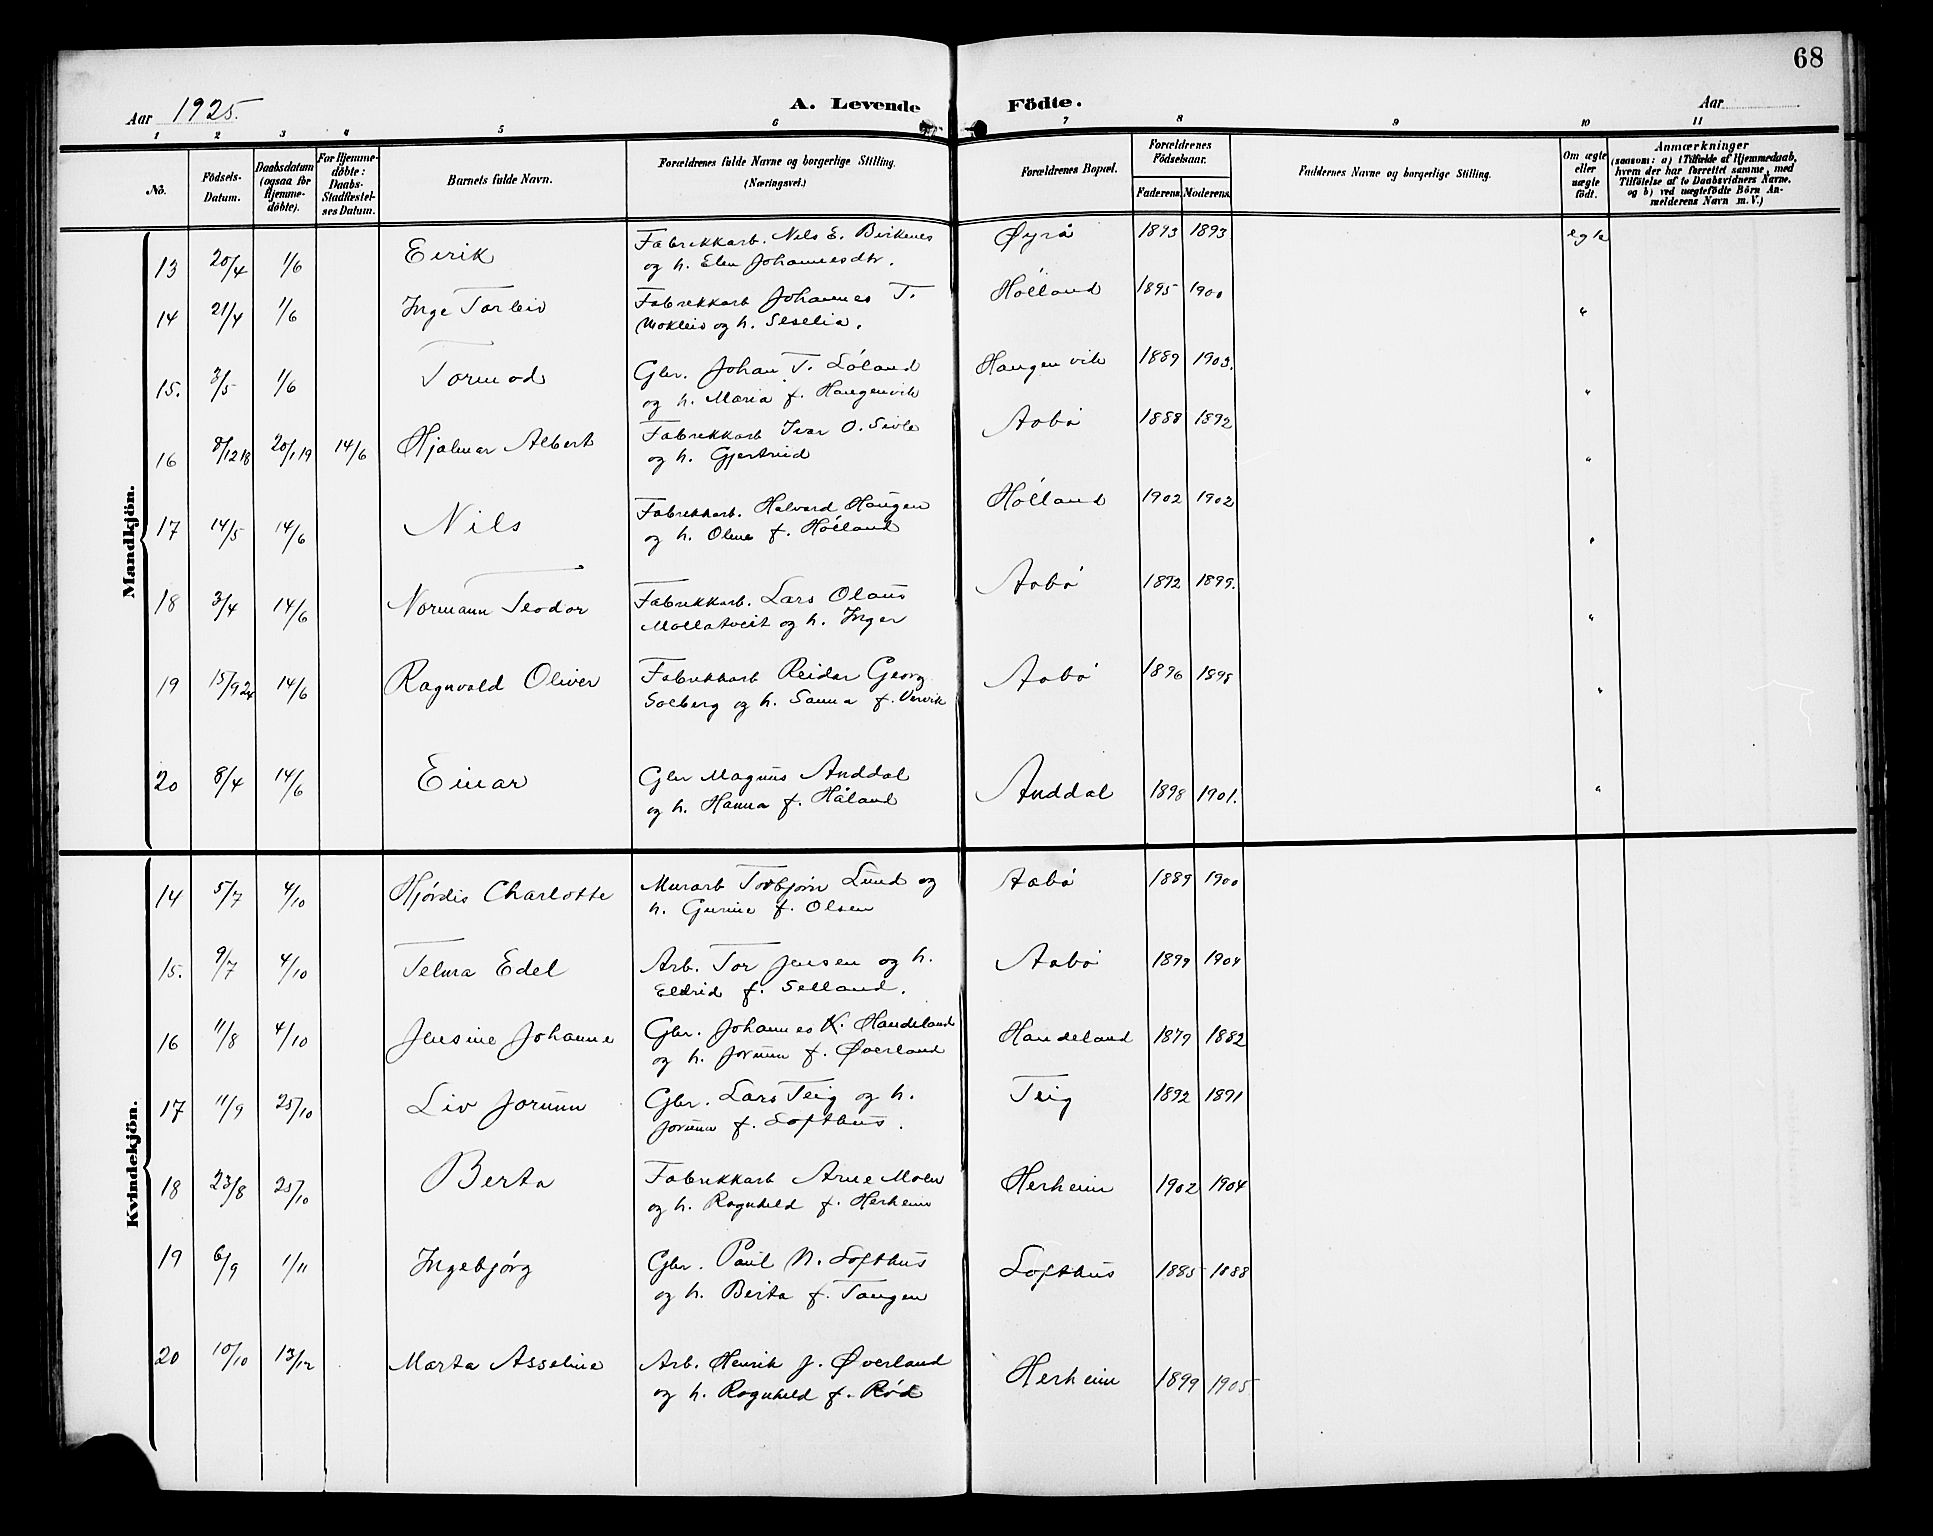 68
Aar 1925.
A. Levende Födte.
Aar
1 2 3 4 5 6 7 8 9 10 11
Nö.
Födsels-Datum.
Daabsdatum (ogsaa for Hjemme-döbte).
For Hjemme-döbte: Daabs-Stadfæstel-ses Datum.
Barnets fulde Navn.
Forældrenes fulde Navne og borgerlige Stilling. (Næringsvei.)
Forældrenes Bopæl.
Forældrenes Födselsaar.
Faderens. Moderens.
Faddernes Navne og borgerlige Stilling.
Om ægte eller uægte födt.
Anmærkninger
(saasom: a) i Tilfælde af Hjemmedaab,
hvem der har forrettet samme, med
Tilföielse af to Daabsvidners Navne.
og b) ved uægtefödte Börn An-
melderens Navn m. V.)
Mandkjön.
13 20/4 1/6 Eirik Fabrikkarb. Nils E. Birkenes Øyrå 1893 1893 egte
og h. Elen Johannesdtr.
14 21/4 1/6 Inge Torleiv Fabrikkarb Johannes T. Hólland 1895 1900 "
Mokleiv og h. Seselia.
15. 3/5 1/6 Tormod Gbr. Johan T. Lóland Haugenvik 1889 1903. "
og h. Maria f. Haugenvik
16 8/12 18 20/1 19 14/6 Hjalmar Albert Fabrikkarb Ivar O. Sivle Aabó 1888 1892 "
og h. Gjertrud
17 14/5 14/6 Nils Fabrikkarb. Halvard Haugen Hólland 1902 1902 "
og h. Olena f. Hólland
18 3/4 14/6 Normann Teodor Fabrikkarb. Lars Olaus Aabó 1892 1899. "
Mollatveit og h. Inger
19 15/9 24 14/6 Ragnvald Oliver Fabrikkarb Reidar Georg Aabó 1896 1898 "
Solberg og h. Sanna f. Vervik
20 8/4 14/6 Einar Gbr Magnus Anddal Anddal 1898 1901. "
og h. Hanna f. Håland
Kvindekjön.
14 5/7 4/10 Hjórdis Charlotte Murarb Torbjórn Lund og Aabó 1889 1900
h. Gurine f. Olsen
15. 9/7 4/10 Telma Edel Arb. Tor Jensen og h. Aabó 1899 1904
Eldrid f. Selland.
16 11/8 4/10 Jensine Johanne Gbr. Johannes K. Handeland Handeland 1879 1882
og h. Jorunn f. Øverland
17 11/9 25/10 Liv Jorunn Gbr. Lars Teig og h. Teig 1892 1891
Jorunn f. Lofthus.
18 23/8 25/10 Berta Fabrikkarb Arne Moen Herheim 1902 1904
og h. Ragnhild f. Herheim
19 6/9 1/11 Ingebjórg Gbr. Paul N. Lofthus Lofthus 1885 1888
og h. Berta f. Tangen
20 10/10 13/12 Marta Asseline Arb. Henrik J. Øverland Herheim 1899 1905
og h. Ragnhild f. Ród